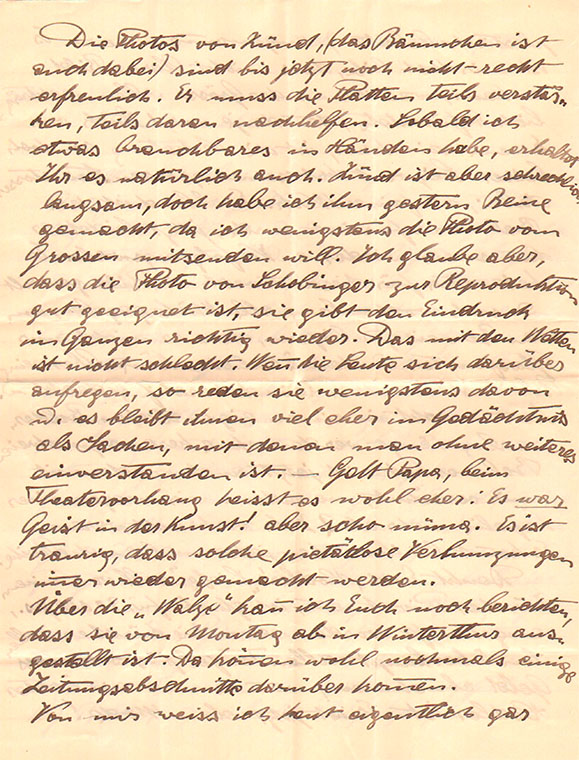 Die Photos von Zünd, (das Bäumchen ist
auch dabei) sind bis jetzt noch nicht recht
erfreulich. Er muss die Platten teils verstär-
ken, teils daran nachhelfen. Sobald ich
etwas brauchbares in Händen habe, erhaltet
Ihr es natürlich auch. Zünd ist aber schrecklich
langsam, doch habe ich ihm gestern Beine
gemacht, da ich wenigstens die Photo vom
Grossen mitsenden will. Ich glaube aber,
dass die Photo von Schobinger zur Reproduktion
gut geeignet ist, sie gibt den Eindruck
im Ganzen richtig wieder. Das mit den Wetten
ist nicht schlecht. Wen̄ die Leute sich darüber
aufregen, so reden sie wenigstens davon
u. es bleibt ihnen viel eher im Gedächtnis
als Sachen, mit denen man ohne weiteres
einverstanden ist. — Gell Papa, beim
Theatervorhang heisst es wohl eher: Es war
Geist in der Kunst! aber scho nüma. Es ist
traurig, dass solche pietätlose Verhunzungen
im̄er wieder gemacht werden.
Über die „Walze" kan̄ ich Euch noch berichten,
dass sie von Montag ab in Winterthur aus-
gestellt ist. Da kön̄en wohl nochmals einige
Zeitungsabschnitte darüber kom̄en.
Von mir weiss ich heut eigentlich gar